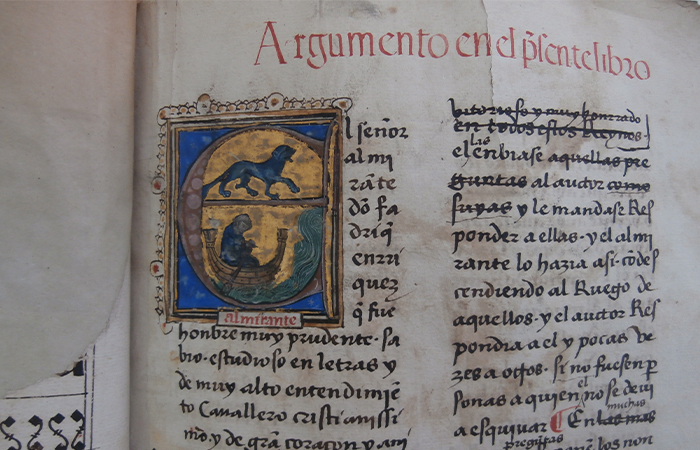 Argumento en el p̃sente libro
El señor
almi
rãte
dõ fa
driq̃
enrri
quez
q̃ fue
almirante
honbre muy prudente · sa
bio · estudioso en letras y
de muy alto entendimiẽ
to Cavallero cristianissi
mo y de grã coraçon y ani
vitorioso y muy honrrado
en todos estos Reynos ·
el las enbiase aquellas pre
guntas al auctor como
suyas y le mandase Res
ponder a ellas · y el almi
rante lo hazia asi · cõdes
cendiendo al Ruego de
aquellos · y el auctor Res
pondia a el y pocas ve
zes a otros · si no fuesen p
sonas a quien el no se devi
a esquivar ¶ En las mas muchas
preguntas